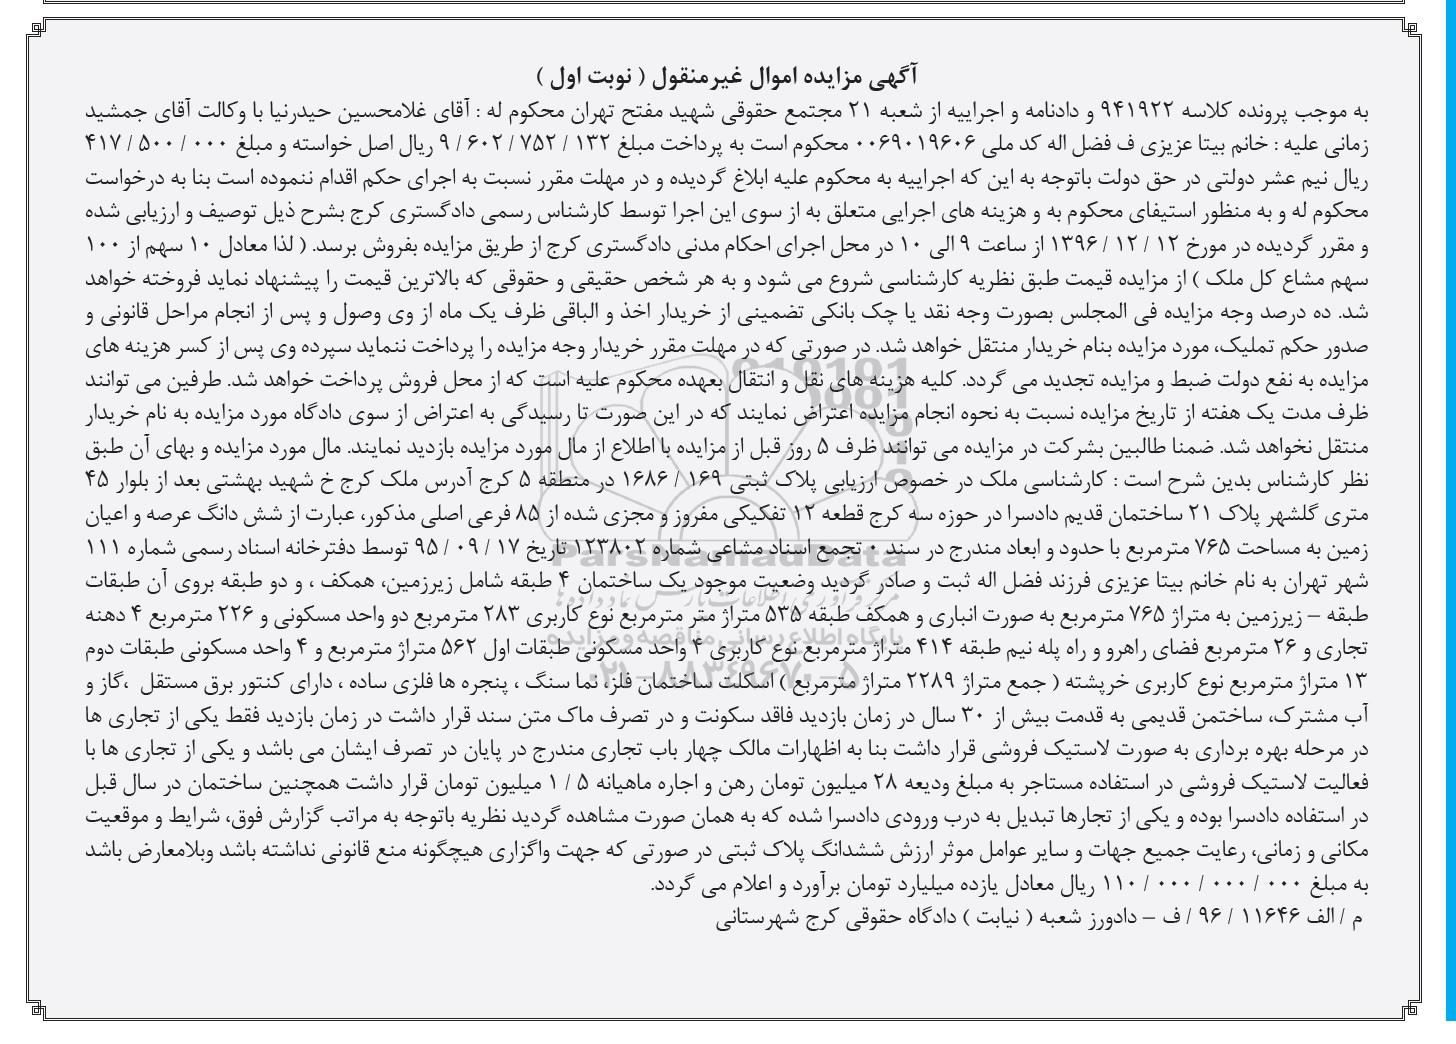 آگهی مزایده اموال غیرمنقول ( نوبت اول )
به موجب پرونده کلاسه ۹۴۱۹۲۲ و دادنامه و اجراییه از شعبه ۲۱ مجتمع حقوقی شهید مفتح تهران محکوم له : آقای غلامحسین حیدرنیا با وکالت آقای جمشید
زمانی علیه : خانم بیتا عزیزی ف فضل اله کد ملی ۰۰۶۹۰۱۹۶۰۶ محکوم است به پرداخت مبلغ ۱۳۲ / ۷۵۲ / ۶۰۲ / ۹ ریال اصل خواسته و مبلغ ۰۰۰ / ۵۰۰ / ۴۱۷
ریال نیم عشر دولتی در حق دولت باتوجه به این که اجراییه به محکوم علیه ابلاغ گردیده و در مهلت مقرر نسبت به اجرای حکم اقدام ننموده است بنا به درخواست
محکوم له و به منظور استیفای محکوم به و هزینه های اجرایی متعلق به از سوی این اجرا توسط کارشناس رسمی دادگستری کرج بشرح ذیل توصیف و ارزیابی شده
و مقرر گردیده در مورخ ۱۲ / ۱۲ / ۱۳۹۶ از ساعت ۹ الی ۱۰ در محل اجرای احکام مدنی دادگستری کرج از طریق مزایده بفروش برسد. ( لذا معادل ۱۰ سهم از ۱۰۰
سهم مشاع کل ملک ) از مزایده قیمت طبق نظریه کارشناسی شروع می شود و به هر شخص حقیقی و حقوقی که بالاترین قیمت را پیشنهاد نماید فروخته خواهد
شد. ده درصد وجه مزایده فی المجلس بصورت وجه نقد یا چک بانکی تضمینی از خریدار اخذ و الباقی ظرف یک ماه از وی وصول و پس از انجام مراحل قانونی و
صدور حکم تملیک، مورد مزایده بنام خریدار منتقل خواهد شد. در صورتی که در مهلت مقرر خریدار وجه مزایده را پرداخت ننماید سپرده وی پس از کسر هزینه های
مزایده به نفع دولت ضبط و مزایده تجدید می گردد. کلیه هزینه های نقل و انتقال بعهده محکوم علیه است که از محل فروش پرداخت خواهد شد. طرفین می توانند
ظرف مدت یک هفته از تاریخ مزایده نسبت به نحوه انجام مزایده اعتراض نمایند که در این صورت تا رسیدگی به اعتراض از سوی دادگاه مورد مزایده به نام خریدار
منتقل نخواهد شد. ضمنا طالبین بشرکت در مزایده می توانند ظرف ۵ روز قبل از مزایده با اطلاع از مال مورد مزایده بازدید نمایند. مال مورد مزایده و بهای آن طبق
نظر کارشناس بدین شرح است : کارشناسی ملک در خصوص ارزیابی پلاک ثبتی ۱۶۹ / ۱۶۸۶ در منطقه ۵ کرج آدرس ملک کرج خ شهید بهشتی بعد از بلوار ۴۵
متری گلشهر پلاک ۲۱ ساختمان قدیم دادسرا در حوزه سه کرج قطعه ۱۲ تفکیکی مفروز و مجزی شده از ۸۵ فرعی اصلی مذکور، عبارت از شش دانگ عرصه و اعیان
زمین به مساحت ۷۶۵ مترمربع با حدود و ابعاد مندرج در سند ۰ تجمع اسناد مشاعی شماره ۱۲۳۸۰۲ تاریخ ۱۷ / ۰۹ / ۹۵ توسط دفترخانه اسناد رسمی شماره ۱۱۱
شهر تهران به نام خانم بیتا عزیزی فرزند فضل اله ثبت و صادر گردید وضعیت موجود یک ساختمان ۴ طبقه شامل زیرزمین، همکف ، و دو طبقه بروی آن طبقات
طبقه – زیرزمین به متراژ ۷۶۵ مترمربع به صورت انباری و همکف طبقه ۵۳۵ متراژ متر مترمربع نوع کاربری ۲۸۳ مترمربع دو واحد مسکونی و ۲۲۶ مترمربع ۴ دهنه
تجاری و ۲۶ مترمربع فضای راهرو و راه پله نیم طبقه ۴۱۴ متراژ مترمربع نوع کاربری ۴ واحد مسکونی طبقات اول ۵۶۲ متراژ مترمربع و ۴ واحد مسکونی طبقات دوم
۱۳ متراژ مترمربع نوع کاربری خرپشته ( جمع متراژ ۲۲۸۹ متراژ مترمربع ) اسکلت ساختمان فلز، نما سنگ ، پنجره ها فلزی ساده ، دارای کنتور برق مستقل ،گاز و
آب مشترک، ساختمن قدیمی به قدمت بیش از ۳۰ سال در زمان بازدید فاقد سکونت و در تصرف ماک متن سند قرار داشت در زمان بازدید فقط یکی از تجاری ها
در مرحله بهره برداری به صورت لاستیک فروشی قرار داشت بنا به اظهارات مالک چهار باب تجاری مندرج در پایان در تصرف ایشان می باشد و یکی از تجاری ها با
فعالیت لاستیک فروشی در استفاده مستاجر به مبلغ ودیعه ۲۸ میلیون تومان رهن و اجاره ماهیانه ۵ / ۱ میلیون تومان قرار داشت همچنین ساختمان در سال قبل
در استفاده دادسرا بوده و یکی از تجارها تبدیل به درب ورودی دادسرا شده که به همان صورت مشاهده گردید نظریه باتوجه به مراتب گزارش فوق، شرایط و موقعیت
مکانی و زمانی، رعایت جمیع جهات و سایر عوامل موثر ارزش ششدانگ پلاک ثبتی در صورتی که جهت واگزاری هیچگونه منع قانونی نداشته باشد وبلامعارض باشد
به مبلغ ۰۰۰ / ۰۰۰ / ۰۰۰ / ۱۱۰ ریال معادل یازده میلیارد تومان برآورد و اعلام می گردد.
م / الف ۱۱۶۴۶ / ۹۶ / ف – دادورز شعبه ( نیابت ) دادگاه حقوقی کرج شهرستانی
ParsNamadData
مرکز فرآوری اطلاعات پارس نماد داده ها
پایگاه اطلاع رسانی مناقصه و مزایده
۰۲۱-۸۸۳۴۹۶۷۰-۵